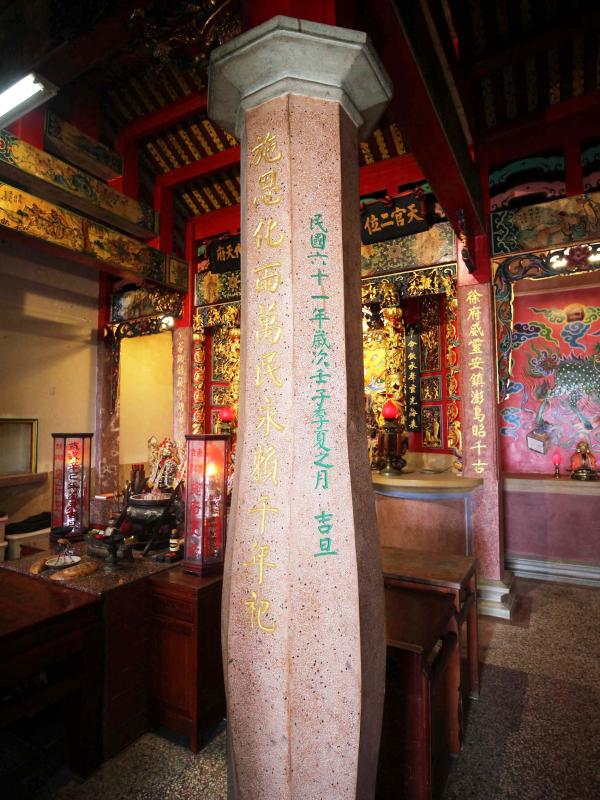 施恩化雨萬民永賴千年祀
民國六十一年歲次壬子季夏之月 吉旦
天官二位
天府
徐府威靈安鎮澎島昭千古